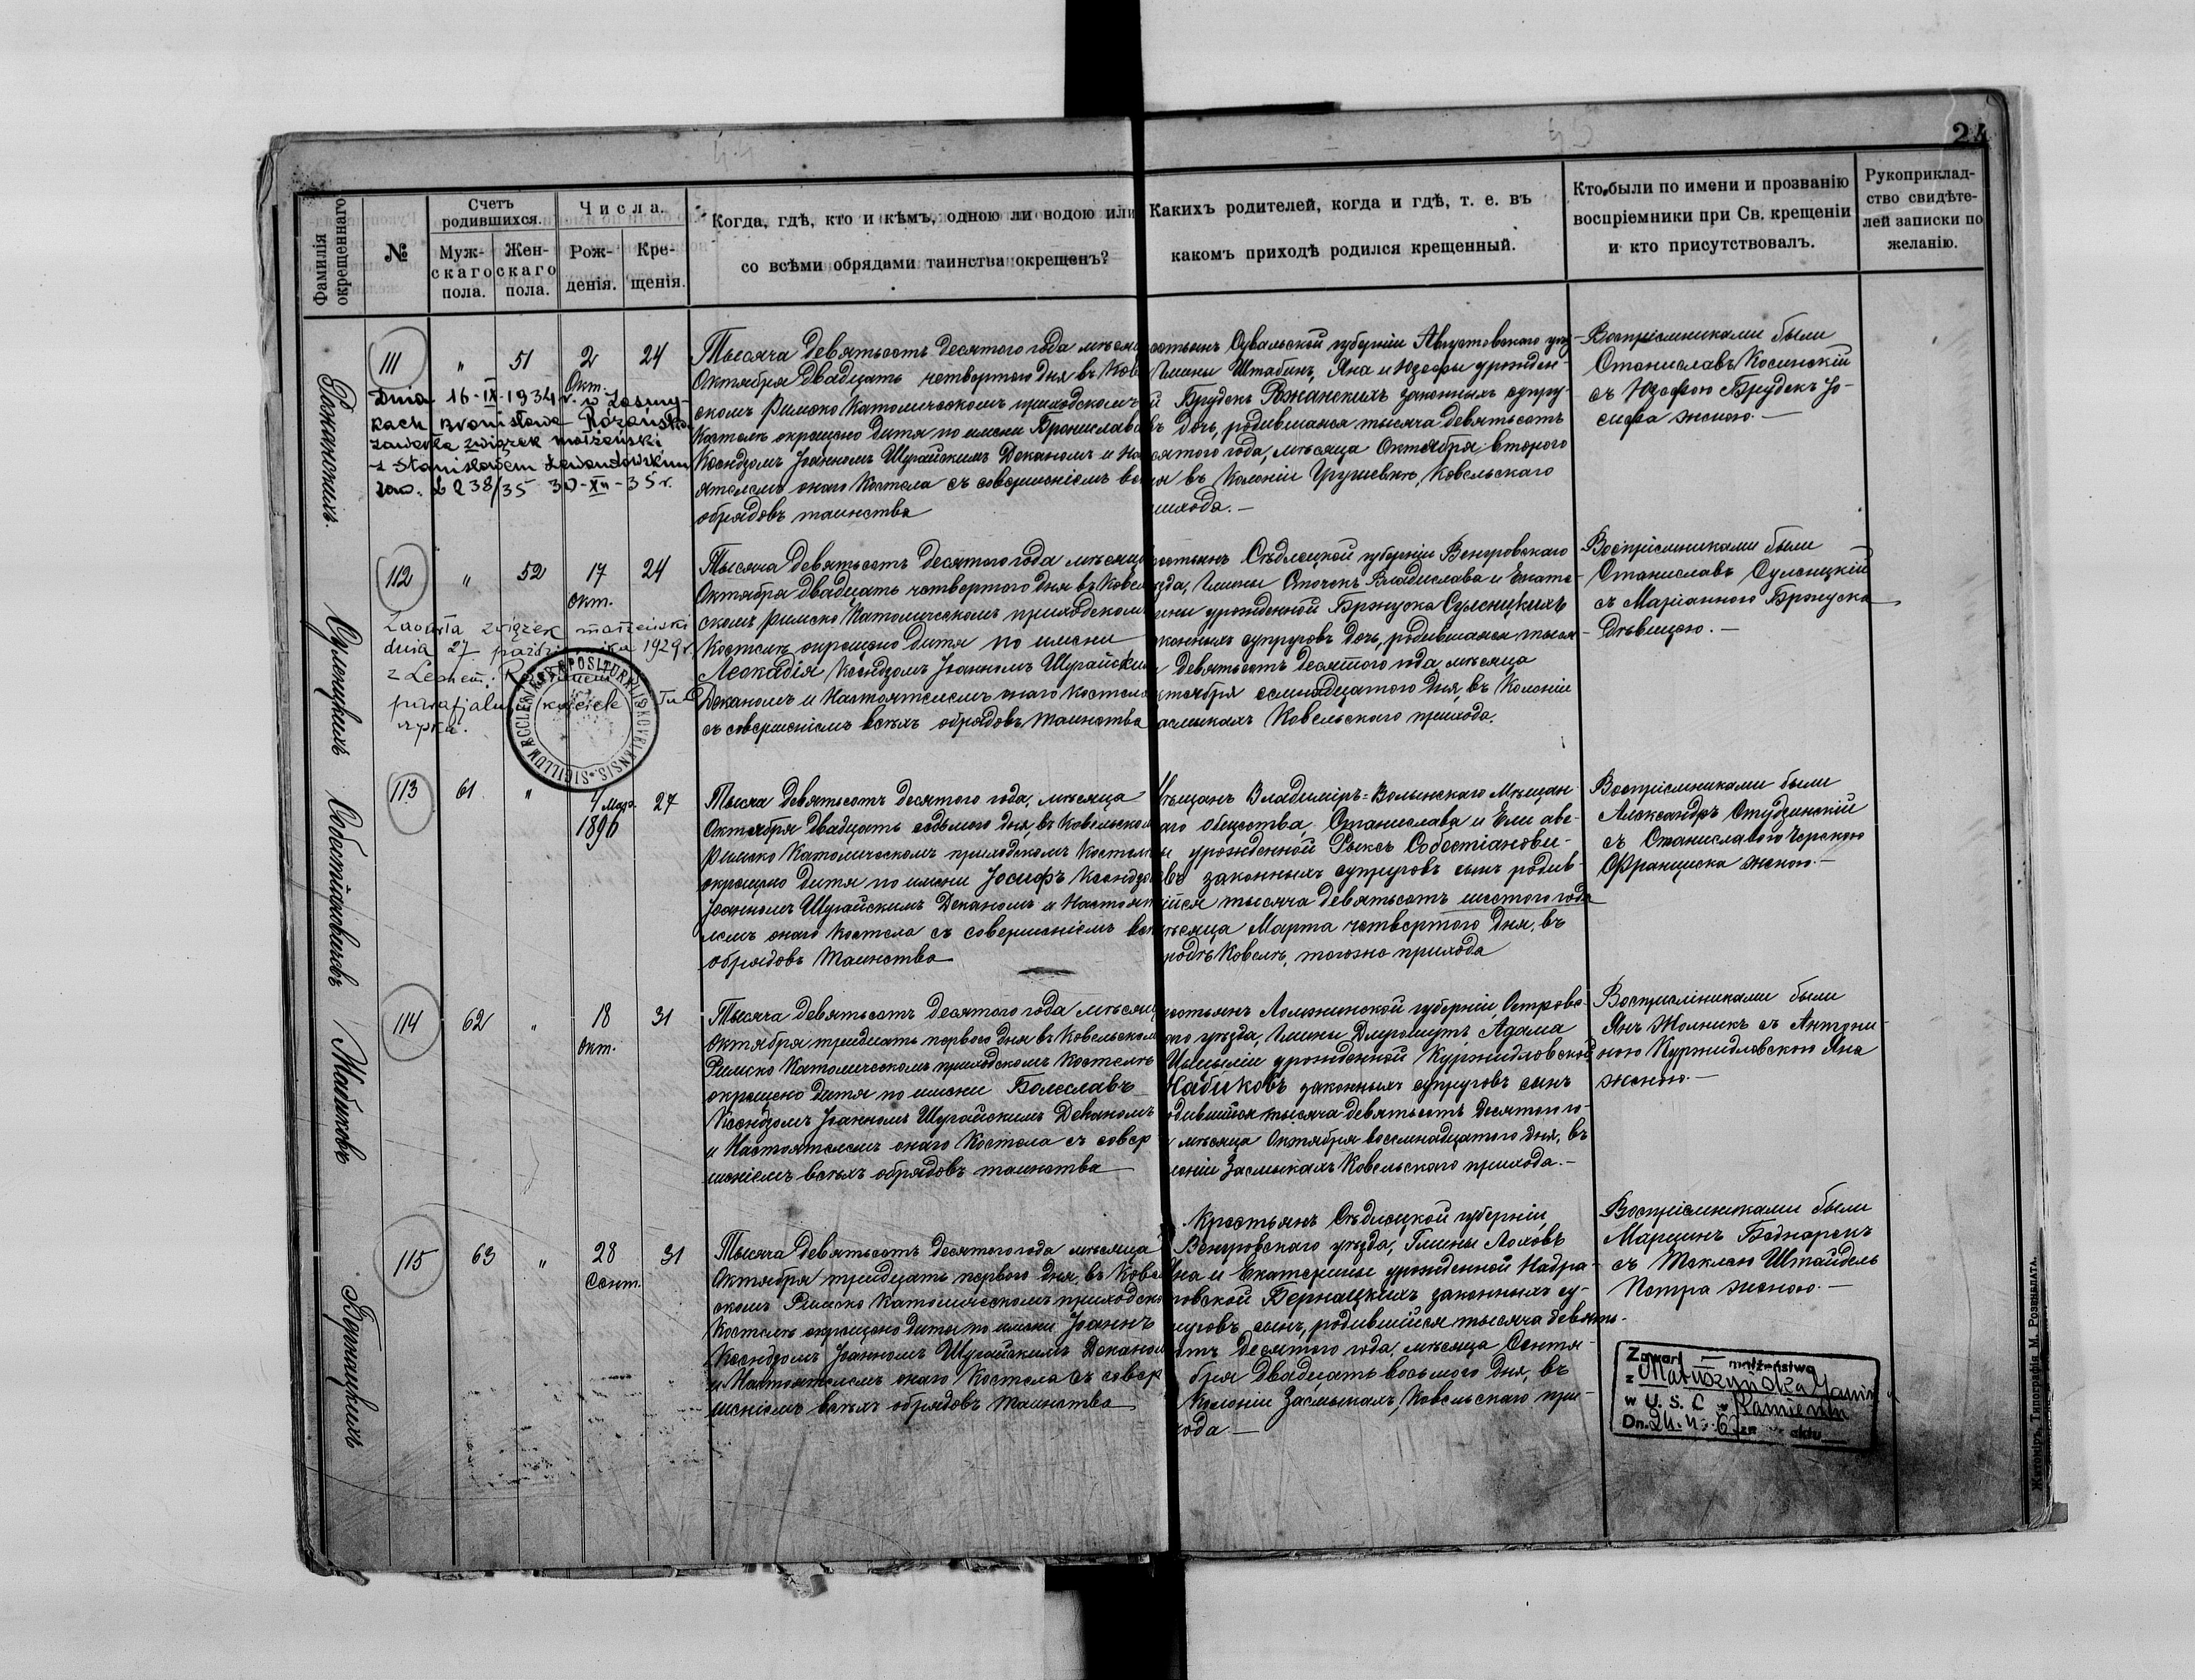 24
Фамилія окрещеннаго
№
Счетъ родившихся.
Муж-
скаго
пола.
Жен-
скаго
пола.
Числа.
Рож-
денія.
Кре-
щенія.
Когда, гдѣ, кто и кѣмъ, одною ли водою или
со всѣми обрядами таинства окрещенъ?
Какихъ родителей, когда и гдѣ, т. е. въ
какомъ приходѣ родился крещенный.
Кто были по имени и прозванію
воспріемники при Св. крещеніи
и кто присутствовалъ.
Рукоприклад-
ство свидѣте-
лей записки по
желанію.
111 " 51 2 24
Окт.
Dnia 16-IX-1934 r. w Zasmy-
kach Bronisława Różańska
zawarła związek małżeński
z Stanisławem Lewandowskim
zaś. L 238/35 30-XII-35 r.
Тысяча девятьсотъ десятого года мѣсяц
Октября двадцать четвертого дня въ Ков
скомъ Римско Католическомъ приходскомъ
Костелѣ окрещено дитя по имени Бронислава
Ксендзомъ Іоанномъ Шурайскимъ Деканомъ и На
ятелемъ онаго Костела съ совершеніемъ вс
обрядовъ таинства
стьянъ Сувальской губерніи Августовскаго уѣз-
Гмины Штабинъ, Яна и Юзефы урожден-
й Брудекъ Рожанскихъ законныхъ супру-
ъ дочь, родившаяся тысяча девятьсотъ
сятого года, мѣсяца Октября второго
я въ Колоніи Грушевкѣ, Ковельскаго
ихода.—
Воспріемниками были
Станиславъ Косинскій
съ Юзефою Брудекъ Іо-
сифа женою.—
112 " 52 17 24
окт.
Zawarła związek małżeński
dnia 27 października 1929 r.
z Leonem
parafjalnym kościele Tu
rypka.
SIGILLUM ECCLESIAE
Тысяча девятьсотъ десятого года мѣсяца
Октября двадцать четвертого дня въ Ковел
скомъ Римско Католическомъ приходскомъ
Костелѣ окрещено дитя по имени
Леокадія, Ксендзомъ Іоанномъ Шурайским
Деканомъ и Настоятелемъ онаго Костела
съ совершеніемъ всѣхъ обрядовъ таинства
естьянъ Сѣдлецкой губерніи Венгровскаго
зда, Гмины Сточекъ Владислава и Екате-
ины урожденной Бржуска Суленицкихъ
конныхъ супруговъ дочь, родившаяся тыся-
девятьсотъ десятого года, мѣсяца
ктября семнадцатого дня, въ Колоніи
асмыкахъ Ковельскаго прихода.
Воспріемниками были
Станиславъ Суленицкій
съ Маріанною Бржуска
дѣвицею.—
113 61 " 4 Мар. 27
1896
Тысяча девятьсотъ десятого года, мѣсяца
Октября двадцать седьмого дня, въ Ковельском
Римско Католическомъ приходскомъ Костел
окрещено дитя по имени Іосифъ Ксендзо
Іоанномъ Шурайскимъ Деканомъ и Настоят
лемъ онаго Костела съ совершеніемъ все
обрядовъ таинства
ѣщанъ Владиміръ-Волынскаго Мѣщан
аго общества, Станислава и Ели аве-
ы урожденной Рыксъ Собестіанови-
въ законныхъ супруговъ сынъ родив-
ійся тысяча девятьсотъ шестого года
ѣсяца Марта четвертого дня, въ
родѣ Ковелѣ, тогоже прихода
Воспріемниками были
Александръ Студзинскій
съ Станиславою Черскою
Франциска женою.—
114 62 " 18 31
окт.
Тысяча девятьсотъ десятого года мѣсяц
Октября тридцать первого дня въ Ковельском
Римско Католическомъ приходскомъ Костелѣ
окрещено дитя по имени Болеславъ
Ксендзомъ Іоанномъ Шурайскимъ Деканомъ
и Настоятелемъ онаго Костела съ совер
шеніемъ всѣхъ обрядовъ таинства
естьянъ Ломжинской губерніи, Островс-
аго уѣзда, Гмины Длугошутъ Адама
Цецыліи урожденной Куржидловской
Жабиковъ законныхъ супруговъ сынъ
одившійся тысяча девятьсотъ десятого го-
мѣсяца Октября восемнадцатого дня, въ
лоніи Засмыкахъ Ковельскаго прихода.—
Воспріемниками были
Янъ Жолникъ съ Антони-
ною Куржидловскою Яна
женою.—
115 63 " 28 31
Сент.
Тысяча девятьсотъ десятого года мѣсяца
Октября тридцать первого дня, въ Ковел
скомъ Римско Католическомъ приходско
Костелѣ окрещено дитя по имени Іоаннъ
Ксендзомъ Іоанномъ Шурайскимъ Деканом
и Настоятелемъ онаго Костела съ совер
шеніемъ всѣхъ обрядовъ таинства
Крестьянъ Сѣдлецкой губерніи,
Венгровскаго уѣзда, Гмины Лоховъ
Яна и Екатерины урожденной Надра-
товской Бернацкихъ законныхъ су-
пруговъ сынъ, родившійся тысяча девять-
отъ десятого года, мѣсяца Сентя-
бря двадцать восьмого дня, въ
Колоніи Засмыкахъ, Ковельскаго при-
хода.—
Воспріемниками были
Марцинъ Боднарекъ
съ Теклею Штайдель
Петра женою.—
Zawarł małżeństwo
z Matuszyńska Janin
w U. S. C. w Kamieniu
Dn. 24. za aktu
Рожанскихъ.
Суленицкихъ
Собестіановичъ
Жабиковъ
Бернацкихъ
Житоміръ, Типографія М. Розенблата.